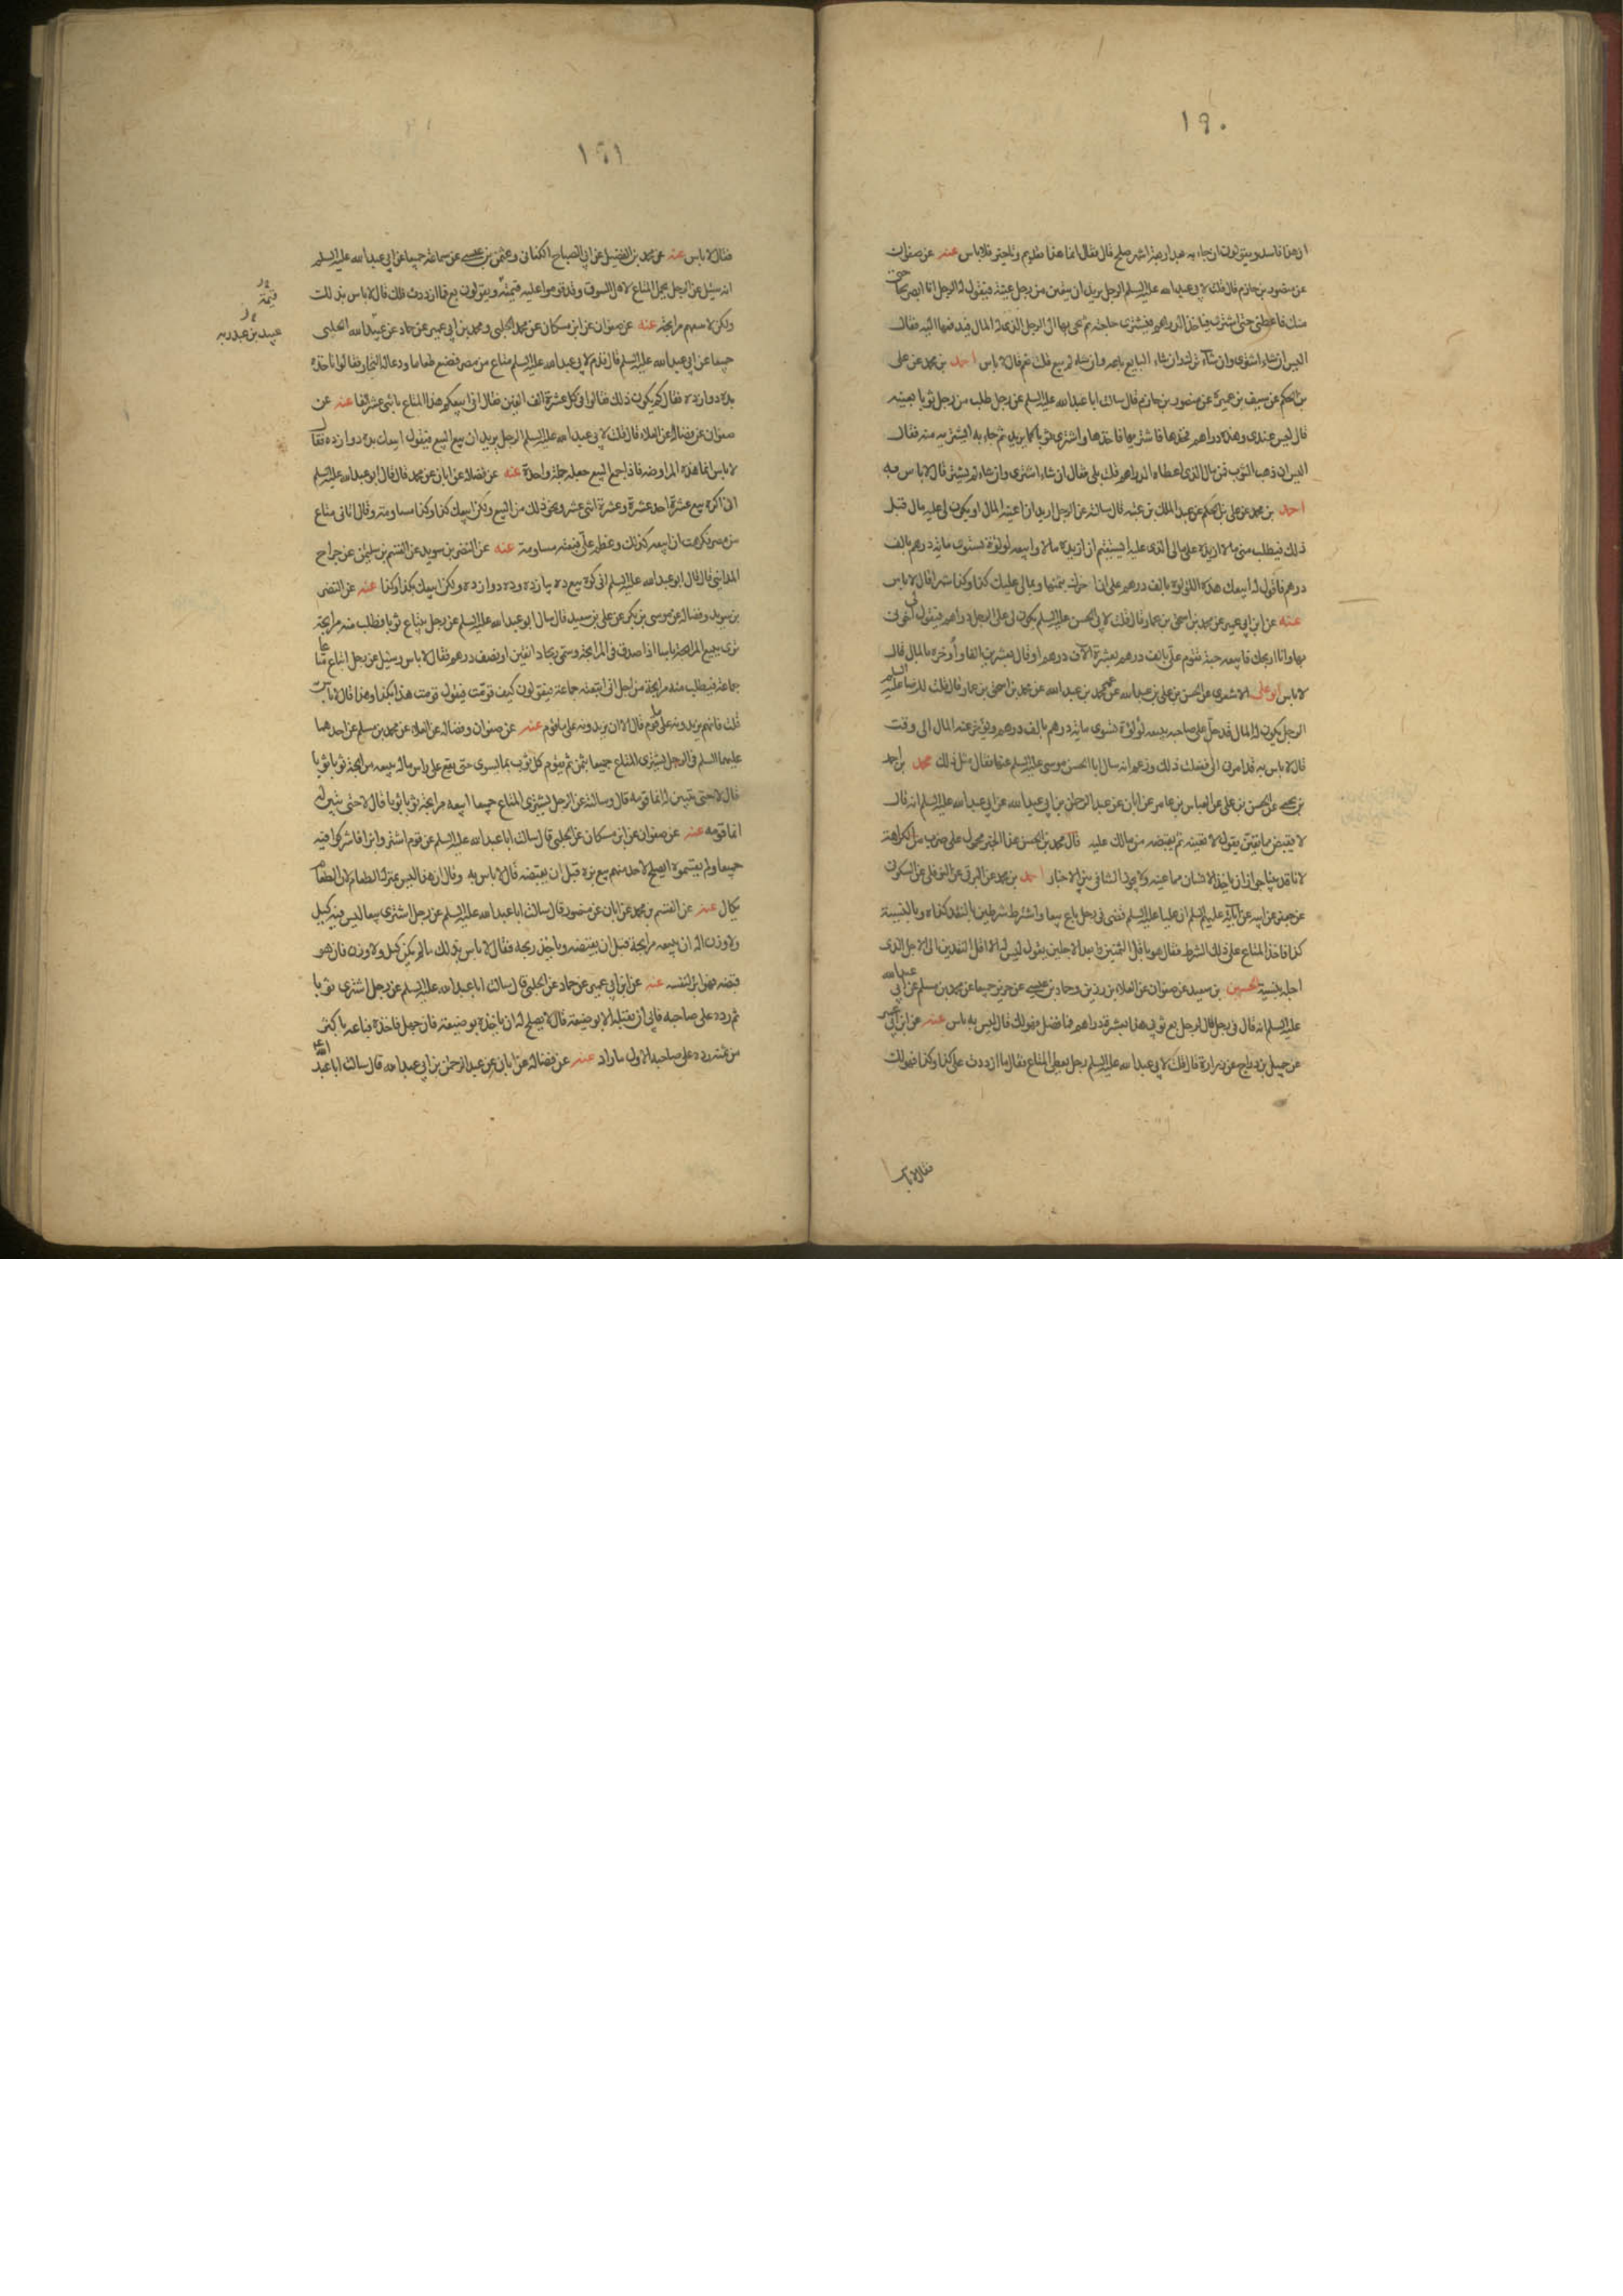 ١٩٠
ان هذا فاسد ويقولون ان جاء به بعد اربعة اشهر صلح قال فقال انما هذا تقديم وتاخير فلا باس عنه عن صفوان
عن منصور بن حازم قال قلت لابي عبدالله عليه السلم الرجل يريد ان يتعين من رجل عينة فيقول له الرجل انا ابصر بحاجتي
منك فاعطني حتى اشتري فياخذ الدراهم فيشتري حاجته ثم يجي بها الى الرجل الذي له المال فيدفعها اليه فقال
اليس ان شاء اشترى وان شاء ترك وان شاء البايع باعه وان شاء لم يبع قلت نعم قال لا باس احمد بن محمد عن علي
بن الحكم عن سيف بن عميرة عن منصور بن حازم قال سالت ابا عبدالله عليه السلم عن رجل طلب من رجل ثوبا بعينه
قال ليس عندي وهذه دراهم فخذها فاشتر بها فاخذها واشترى ثوبا كما يريد ثم جاء به ايشتريه منه فقال
اليس ان ذهب الثوب فمن مال الذي اعطاه الدراهم قلت بلى فقال ان شاء اشترى وان شاء لم يشتر قال لا باس به
احمد بن محمد عن علي بن الحكم عن عبد الملك بن عتبه قال سالته عن الرجل اريد ان اعينه المال او يكون لي عليه مال قبل
ذلك فيطلب مني مالا ازيده على مالي الذي عليه ايستقيم ان ازيده مالا وابيعه لولوة تسوى ماية درهم بالف
درهم فاقول له ابيعك هذه اللؤلؤة بالف درهم على ان اوخرك بثمنها وبمالي عليك كذا وكذا شهرا قال لا باس
عنه عن ابن ابي عمير عن محمد بن اسحق بن عمار قال قلت لابي الحسن عليه السلم يكون لي على الرجل دراهم فيقول اخرني
بها وانا اربحك فابيعه جبة تقوم علي بالف درهم بعشرة آلاف درهم او قال بعشرين الفا واوخره بالمال قال
لا باس ابو علي الاشعري عن الحسن بن علي بن عبدالله عن عمه محمد بن عبدالله عن محمد بن اسحق بن عمار قال قلت للرضا عليه السلم
الرجل يكون له المال قد حل على صاحبه يبيعه لؤلؤة تسوى ماية درهم بالف درهم ويؤخر عنه المال الى وقت
قال لا باس به قد امرني ابي ففعلت ذلك وزعم انه سال ابا الحسن موسى عليه السلم عنها فقال مثل ذلك محمد بن احمد
بن يحيى عن الحسن بن علي عن العباس بن عامر عن ابان عن عبد الرحمن بن ابي عبدالله عن ابي عبدالله عليه السلم انه قال
لا يقبض مما يعين يقول لا تعينه ثم يقبضه من مالك عليه قال محمد بن الحسن هذا الخبر محمول على ضرب من الكراهة
لانا قد بينا جواز ان ياخذ الانسان مما عينه ولا يجوز التنافي بين الاخبار احمد بن محمد عن البرقي عن النوفلي عن السكوني
عن جعفر عن ابيه عن آبائه عليهم السلم ان عليا عليه السلم قضى في رجل باع بيعا واشترط شرطين بالنقد كذا وبالنسية
كذا فاخذ المتاع على ذلك الشرط فقال هو باقل الثمنين وابعد الاجلين يقول ليس له الا اقل النقدين الى الاجل الذي
اجله بنسية الحسين بن سعيد عن صفوان عن العلاء بن رزين وحماد بن عيسى عن حريز جميعا عن محمد بن مسلم عن ابي عبدالله
عليه السلم انه قال في رجل قال لرجل بع ثوبي هذا بعشرة دراهم فما فضل فهو لك قال ليس به باس عنه عن ابن ابي عمير
عن جميل بن دراج عن زرارة قال قلت لابي عبدالله عليه السلم رجل يعطي المتاع فيقال ما ازددت على كذا وكذا فهو لك
فقال لا باس
١٩١
فقال لا باس عنه عن محمد بن الفضيل عن ابي الصباح الكناني وعثمن بن عيسى عن سماعة جميعا عن ابي عبدالله عليه السلم
انه سئل عن الرجل يحمل المتاع لاهل السوق وقد قوموا عليه قيمته ويقولون بع فما ازددت فلك قال لا باس بذلك
ولكن لا يبيعهم مرابحة عنه عن صفوان عن ابن مسكان عن محمد الحلبي ومحمد بن ابي عمير عن حماد عن عبيدالله الحلبي
جميعا عن ابي عبدالله عليه السلم قال قدم لابي عبدالله عليه السلم متاع من مصر فصنع طعاما ودعا له التجار فقالوا ناخذه
بده دوازده فقال كم يكون ذلك فقالوا في كل عشرة الف الفين فقال اني ابيعكم هذا المتاع باثني عشر الفا عنه عن
صفوان عن فضالة عن العلاء قال قلت لابي عبدالله عليه السلم الرجل يريد ان يبيع البيع فيقول ابيعك بده دوازده فقال
لا باس انما هذه المراوضة فاذا جمع البيع جعله جملة واحدة عنه عن فضالة عن ابان عن محمد قال قال ابو عبدالله عليه السلم
اني اكره بيع عشرة باحد عشرة وعشرة اثني عشر ونحو ذلك من البيع ولكن ابيعك كذا وكذا مساومة وقال اتاني متاع
من مصر فكرهت ان ابيعه كذلك وعظم علي فبعته مساومة عنه عن النضر بن سويد عن القسم بن سليمن عن جراح
المدايني قال قال ابو عبدالله عليه السلم اني اكره بيع ده يازده وده دوازده ولكن ابيعك بكذا وكذا عنه عن النضر
بن سويد وفضالة عن موسى بن بكر عن علي بن سعيد قال سال ابو عبدالله عليه السلم عن رجل يبتاع ثوبا فطلب منه مرابحة
ترى ببيع المرابحة باسا اذا صدق في المرابحة وسمى ربحا دانقين او نصف درهم فقال لا باس وسئل عن رجل ابتاع متاعا
جماعة فيطلب منه مرابحة من اجل اني ابتعته جماعة فيقولون كيف قومت فيقول قومت هذا بكذا وهذا قال لا باس
قلت فانهم يزيدونه على ما قوم قال الا ان يزيدونه على ما قوم عنه عن صفوان وفضالة عن العلاء عن محمد بن مسلم عن احدهما
عليهما السلم في الرجل يشتري المتاع جميعا بثمن ثم يقوم كل ثوب بما يسوى حتى يقع على راس ماله يبيعه مرابحة ثوبا ثوبا
قال لا حتى يتبين له انما قومه قال وسالته عن الرجل يشتري المتاع جميعا ايبيعه مرابحة ثوبا ثوبا قال لا حتى يتبين له
انما قومه عنه عن صفوان عن ابن مسكان عن الحلبي قال سالت ابا عبدالله عليه السلم عن قوم اشتروا بزا فاشتركوا فيه
جميعا ولم يقتسموه ايصلح لاحد منهم بيع بزه قبل ان يقبضه قال لا باس به وقال ان هذا ليس بمنزلة الطعام لان الطعام
يكال عنه عن القسم بن محمد عن ابان عن منصور قال سالت ابا عبدالله عليه السلم عن رجل اشترى بيعا ليس فيه كيل
ولا وزن اله ان يبيعه مرابحة قبل ان يقبضه وياخذ ربحه فقال لا باس بذلك ما لم يكن كيل ولا وزن فان هو
قبضه فهو ابرء لنفسه عنه عن ابن ابي عمير عن حماد عن الحلبي قال سالت ابا عبدالله عليه السلم عن رجل اشترى ثوبا
ثم رده على صاحبه فابى ان يقبله الا بوضيعة قال لا يصلح له ان ياخذه بوضيعة فان جهل فاخذه فباعه باكثر
من ثمنه رده على صاحبه الاول ما زاد عنه عن فضالة عن ابان عن عبد الرحمن بن ابي عبدالله قال سالت ابا عبدالله
قيمة
عبيد بن عبد ربه